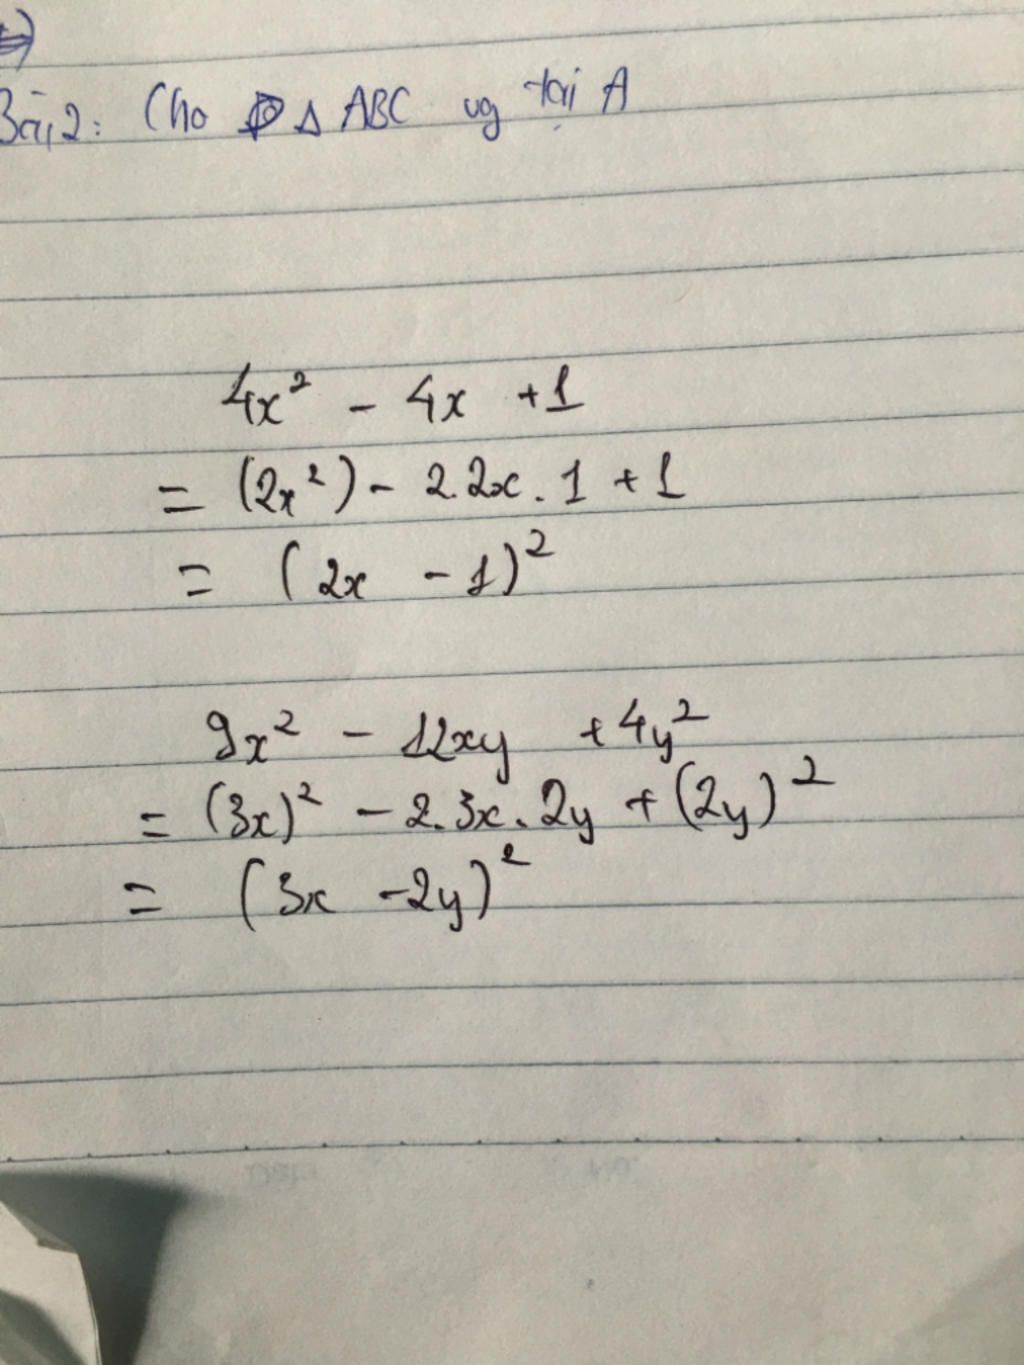 Bài 2: Cho Δ ABC vg tại A
4x² - 4x + 1
= (2x²) - 2.2x.1 + 1
= (2x - 1)²
9x² - 12xy + 4y²
= (3x)² - 2.3x.2y + (2y)²
= (3x - 2y)²